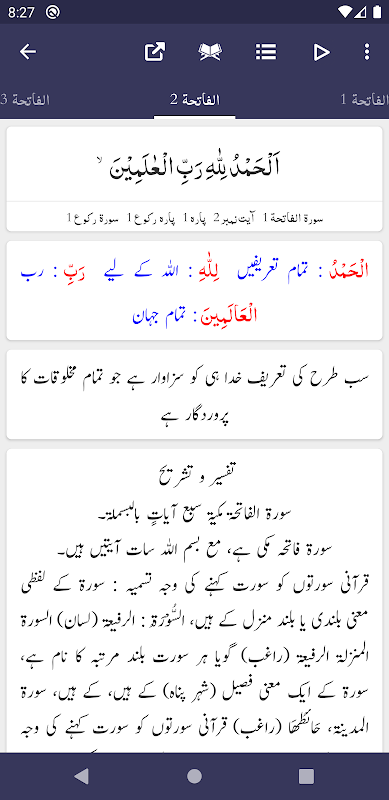 8:27
الفاتحة 1
الفاتحة 2
الفاتحة 3
اَلْحَمْدُ لِلّٰهِ رَبِّ الْعٰلَمِیْنَ ۙ
سورۃ الفاتحة 1 آیت نمبر 2 پارہ 1 پارہ رکوع 1 سورۃ رکوع 1
الْحَمْدُ : تمام تعریفیں لِلّٰهِ : اللہ کے لیے رَبِّ : رب
الْعَالَمِينَ : تمام جہان
سب طرح کی تعریف خدا ہی کو سزاوار ہے جو تمام مخلوقات کا
پروردگار ہے
تفسیر و تشریح
سورۃ الفاتحۃ مکیۃ سبع آیاتٍ بالبسملۃ۔
سورۃ فاتحہ مکی ہے، مع بسم اللہ سات آیتیں ہیں۔
قرآنی سورتوں کو سورت کہنے کی وجہ تسمیہ : سورۃ کے لفظی
معنی بلندی یا بلند منزل کے ہیں، السُّوْرَۃ : الرفیعۃ (لسان) السورۃ
المنزلۃ الرفیعۃ (راغب) گویا ہر سورت بلند مرتبہ کا نام ہے،
سورۃ کے ایک معنی فصیل (شہر پناہ) کے ہیں، کے ہیں، سورۃ
المدینۃ، حَائطُھَا (راغب) قرآنی سورتوں کو سورت کہنے کی وجہ